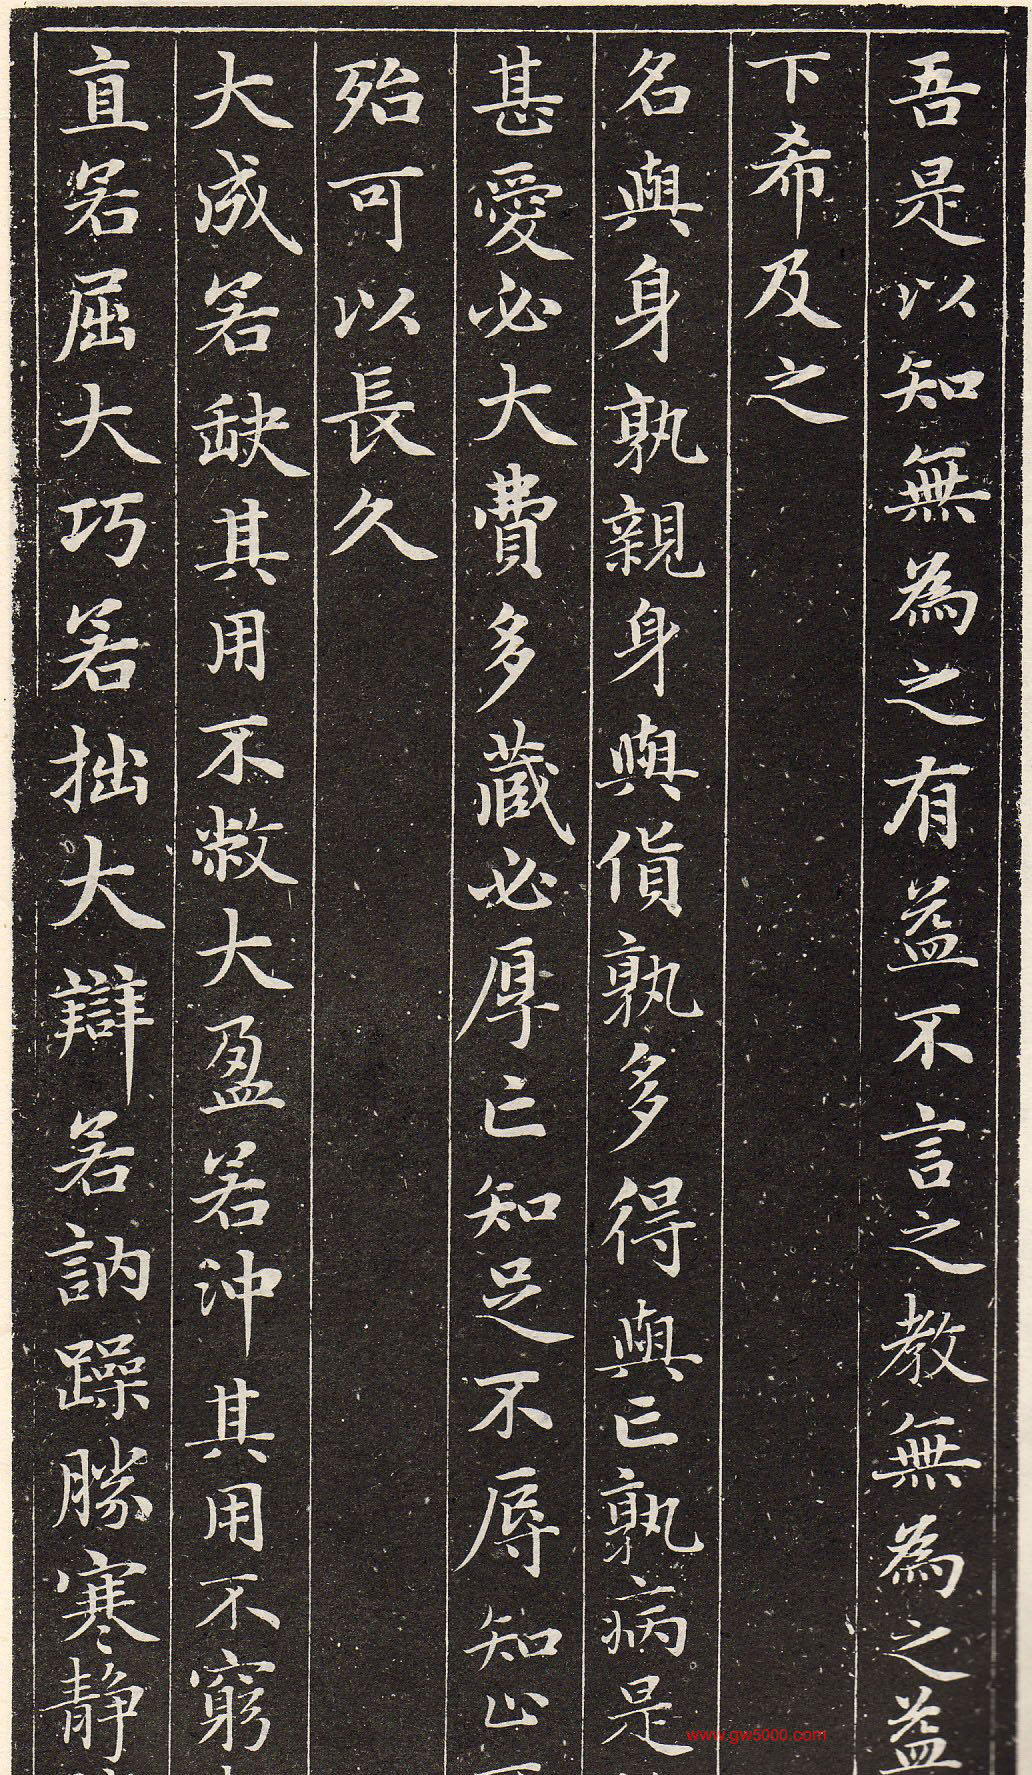 吾是以知無為之有益不言之教無為之益
下希及之
名與身孰親身與貨孰多得與亡孰病是
甚愛必大費多藏必厚亡知足不辱知止
殆可以長久
大成若缺其用不敝大盈若沖其用不窮
直若屈大巧若拙大辯若訥躁勝寒静
www.gw5000.com